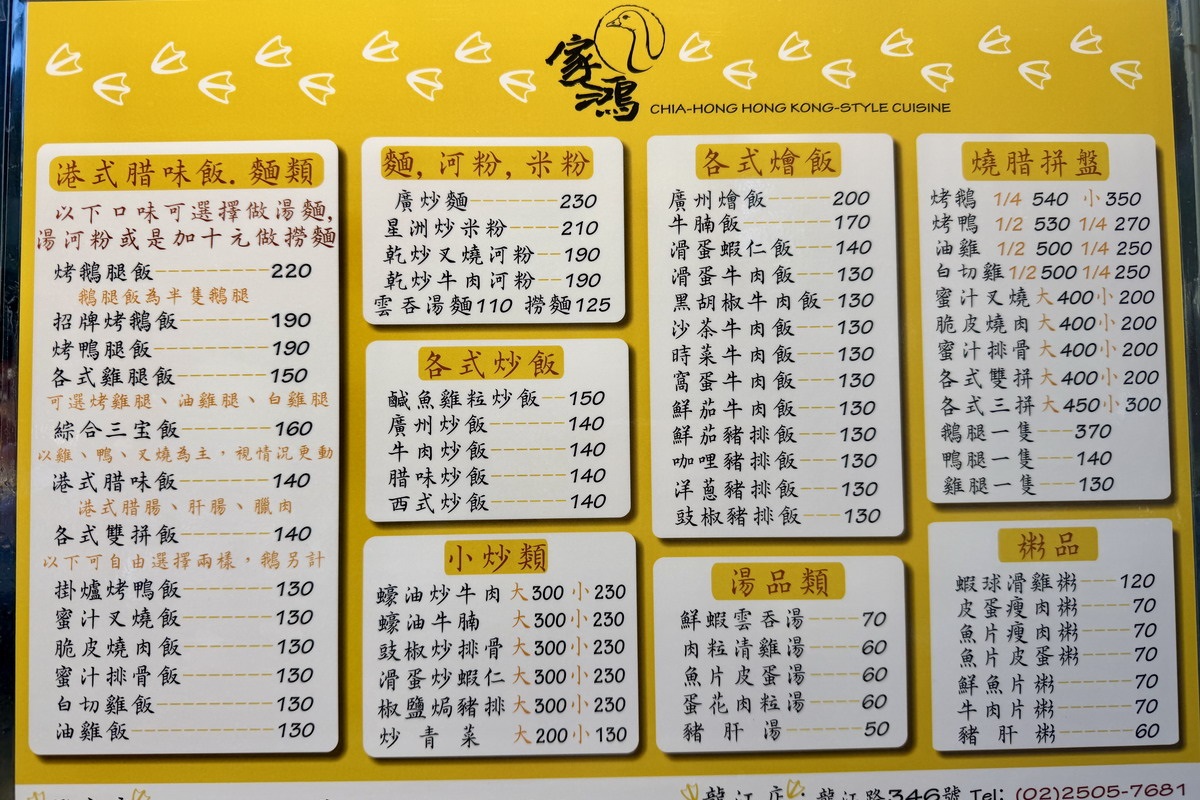 家鴻
CHIA-HONG HONG KONG-STYLE CUISINE
港式腊味飯.麵類
以下口味可選擇做湯麵,
湯河粉或是加十元做撈麵
烤鵝腿飯 220
鵝腿飯為半隻鵝腿
招牌烤鵝飯 190
烤鴨腿飯 190
各式雞腿飯 150
可選烤雞腿、油雞腿、白雞腿
綜合三宝飯 160
以雞、鴨、叉燒為主，視情況更動
港式腊味飯 140
港式腊腸、肝腸、臘肉
各式雙拼飯 140
以下可自由選擇兩樣，鵝另計
掛爐烤鴨飯 130
蜜汁叉燒飯 130
脆皮燒肉飯 130
蜜汁排骨飯 130
白切雞飯 130
油雞飯 130
麵,河粉,米粉
廣炒麵 230
星洲炒米粉 210
乾炒叉燒河粉 190
乾炒牛肉河粉 190
雲吞湯麵110 撈麵125
各式炒飯
鹹魚雞粒炒飯 150
廣州炒飯 140
牛肉炒飯 140
腊味炒飯 140
西式炒飯 140
小炒類
蠔油炒牛肉 大300 小230
蠔油牛腩 大300 小230
豉椒炒排骨 大300 小230
滑蛋炒蝦仁 大300 小230
椒鹽焗豬排 大300 小230
炒青菜 大200 小130
各式燴飯
廣州燴飯 200
牛腩飯 170
滑蛋蝦仁飯 140
滑蛋牛肉飯 130
黑胡椒牛肉飯 130
沙茶牛肉飯 130
時菜牛肉飯 130
窩蛋牛肉飯 130
鮮茄牛肉飯 130
鮮茄豬排飯 130
咖哩豬排飯 130
洋蔥豬排飯 130
豉椒豬排飯 130
湯品類
鮮蝦雲吞湯 70
肉粒清雞湯 60
魚片皮蛋湯 60
蛋花肉粒湯 60
豬肝湯 50
燒腊拼盤
烤鵝 1/4 540 小350
烤鴨 1/2 530 1/4 270
油雞 1/2 500 1/4 250
白切雞 1/2 500 1/4 250
蜜汁叉燒 大400 小200
脆皮燒肉 大400 小200
蜜汁排骨 大400 小200
各式雙拼 大400 小200
各式三拼 大450 小300
鵝腿一隻 370
鴨腿一隻 140
雞腿一隻 130
粥品
蝦球滑雞粥 120
皮蛋瘦肉粥 70
魚片瘦肉粥 70
魚片皮蛋粥 70
鮮魚片粥 70
牛肉片粥 70
豬肝粥 60
龍江店：龍江路346號 Tel: (02)2505-7681